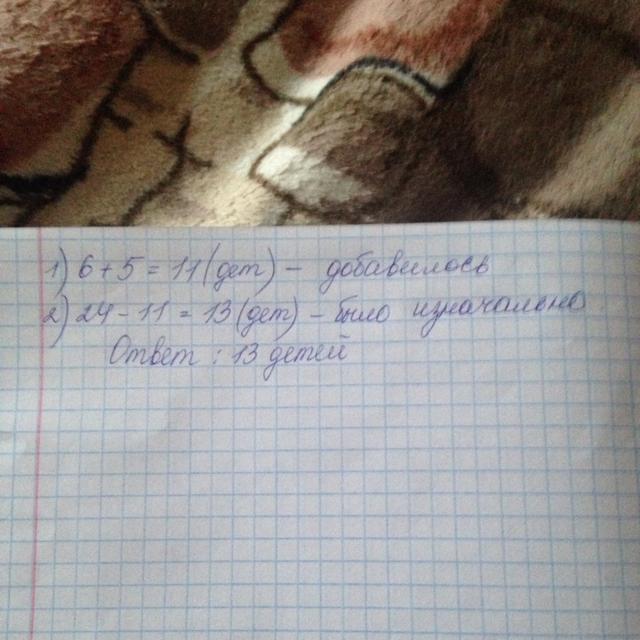 1) 6+5=11(дет) - добавилось
2) 24-11=13(дет) - было изначально
Ответ: 13 детей